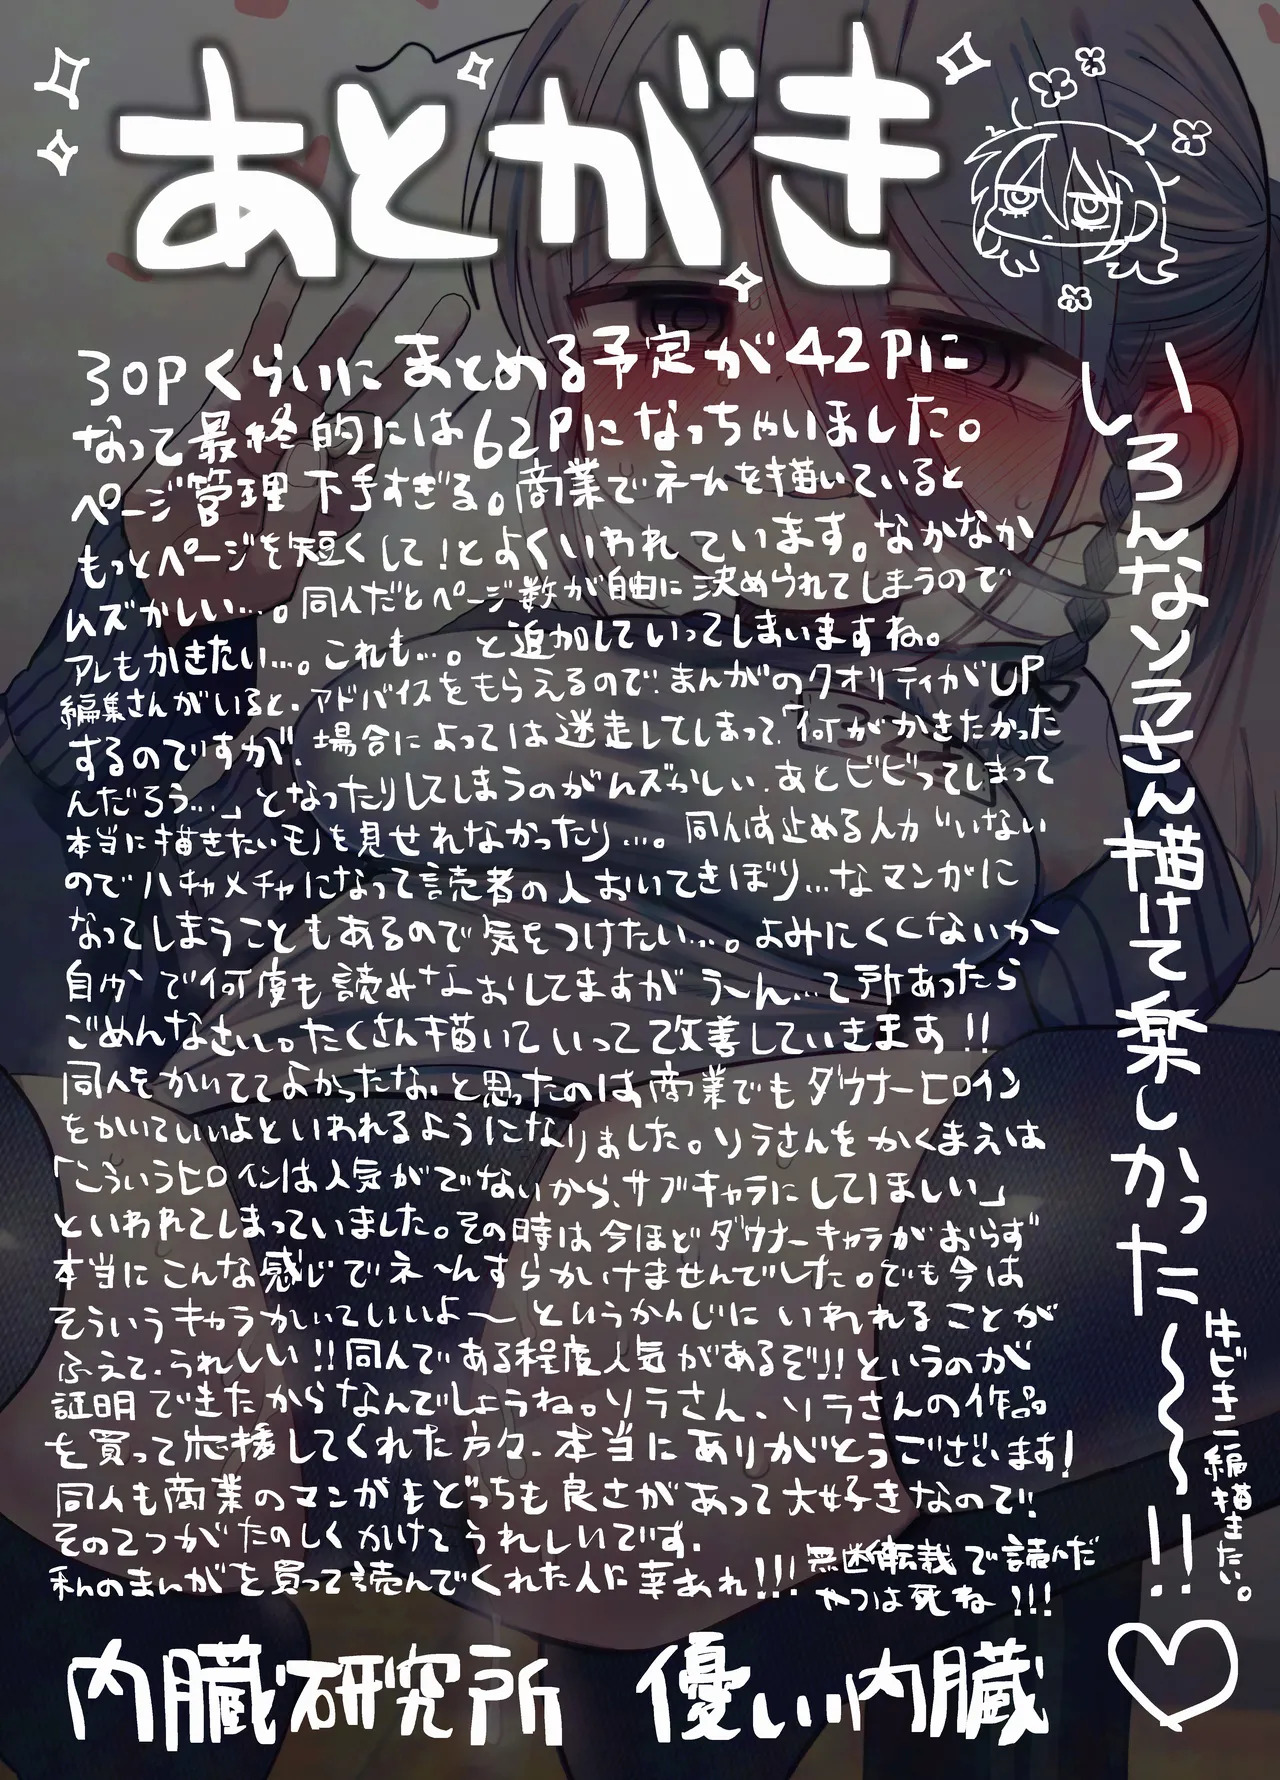 あとがき
30Pくらいにまとめる予定が42Pに
なって最終的には62Pになっちゃいました。
ページ管理下手すぎる。商業でネームを描いていると
もっとページを短くして!とよくいわれています。なかなか
ムズかしい…。同人だとページ数が自由に決められてしまうので
アレもかきたい…。これも…。と追加していってしまいますね。
編集さんがいると、アドバイスをもらえるので、まんがのクオリティがUP
するのですが、場合によっては迷走してしまって「何がかきたかった
んだろう…」となったりしてしまうのがムズかしい、あとビビってしまって
本当に描きたいモノを見せれなかったり…。同人は止める人がいない
のでハチャメチャになって読者の人おいてきぼり…なマンガに
なってしまうこともあるので気をつけたい…。よみにくくないか
自分で何度も読みなおしてますがう〜ん…て所あったら
ごめんなさい。たくさん描いていって改善していきます!!
同人をかいててよかったな、と思ったのは商業でもダウナーヒロイン
をかいていいよといわれるようになりました。ソラさんをかくまえは
「こういうヒロインは人気がでないから、サブキャラにしてほしい」
といわれてしまっていました。その時は今ほどダウナーキャラがおらず
本当にこんな感じでネ〜んすらかけませんでした。でも今は
そういうキャラかいていいよ〜というかんじにいわれることが
ふえて、うれしい!!同人である程度人気があるぞ!!というのが
証明できたからなんでしょうね。ソラさん、ソラさんの作品
を買って応援してくれた方々、本当にありがとうございます!
同人も商業のマンガもどっちも良さがあって大好きなので!!
その2つがたのしくかけてうれしいです。
私のまんがを買って読んでくれた人に幸あれ!!!
無断転載で読んだ
やつは死ね!!!
内臓研究所 優しい内臓
いろんなソラさん描けて楽しかった〜〜!!
牛ビキニ編描きたい。